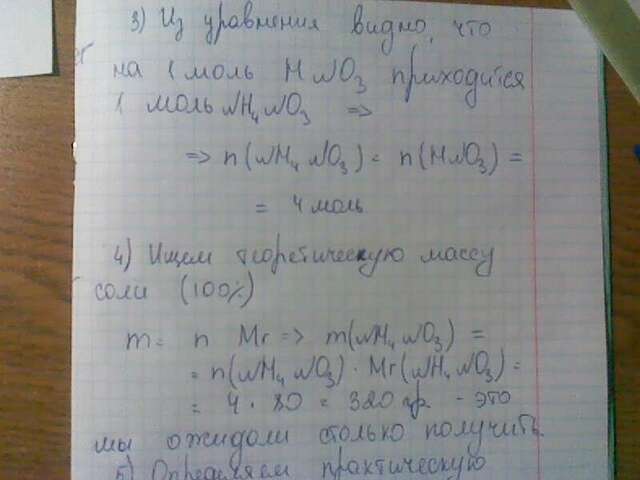 3) Из уравнения видно, что
на 1 моль HNO3 приходится
1 моль NH4NO3 =>
=> n(NH4NO3) = n(HNO3) =
= 4 моль
4) Ищем теоретическую массу
соли (100%)
m = n Mr => m(NH4NO3) =
= n(NH4NO3) · Mr(NH4NO3) =
= 4 · 80 = 320 гр - это
мы ожидали столько получить
5) Определяем практическую